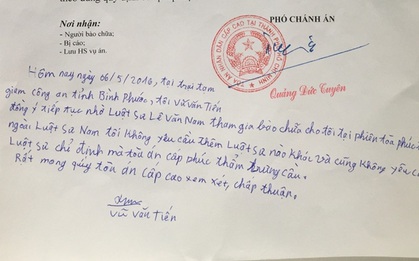 Nơi nhận:
- Người bào chữa;
- Bị cáo;
- Lưu HS vụ án.
PHÓ CHÁNH ÁN
ÁN NHÂN DÂN CẤP CAO TẠI THÀNH PHỐ HỒ CHÍ MINH
Quảng Đức Tuyên
Hôm nay ngày 06/5/2016, tại trại tạm
giam công an tỉnh Bình Phước, tôi Vũ Văn Tiến
đồng ý tiếp tục nhờ Luật Sư Lê Văn Nam tham gia bào chữa cho tôi tại phiên tòa phúc
ngoài Luật Sư Nam tôi không yêu cầu thêm Luật Sư nào khác và cũng không yêu c
Luật Sư chỉ định mà tòa án cấp phúc thẩm trưng cầu.
Rất mong quý tòa án cấp cao xem xét, chấp thuận.
Vũ Văn Tiến